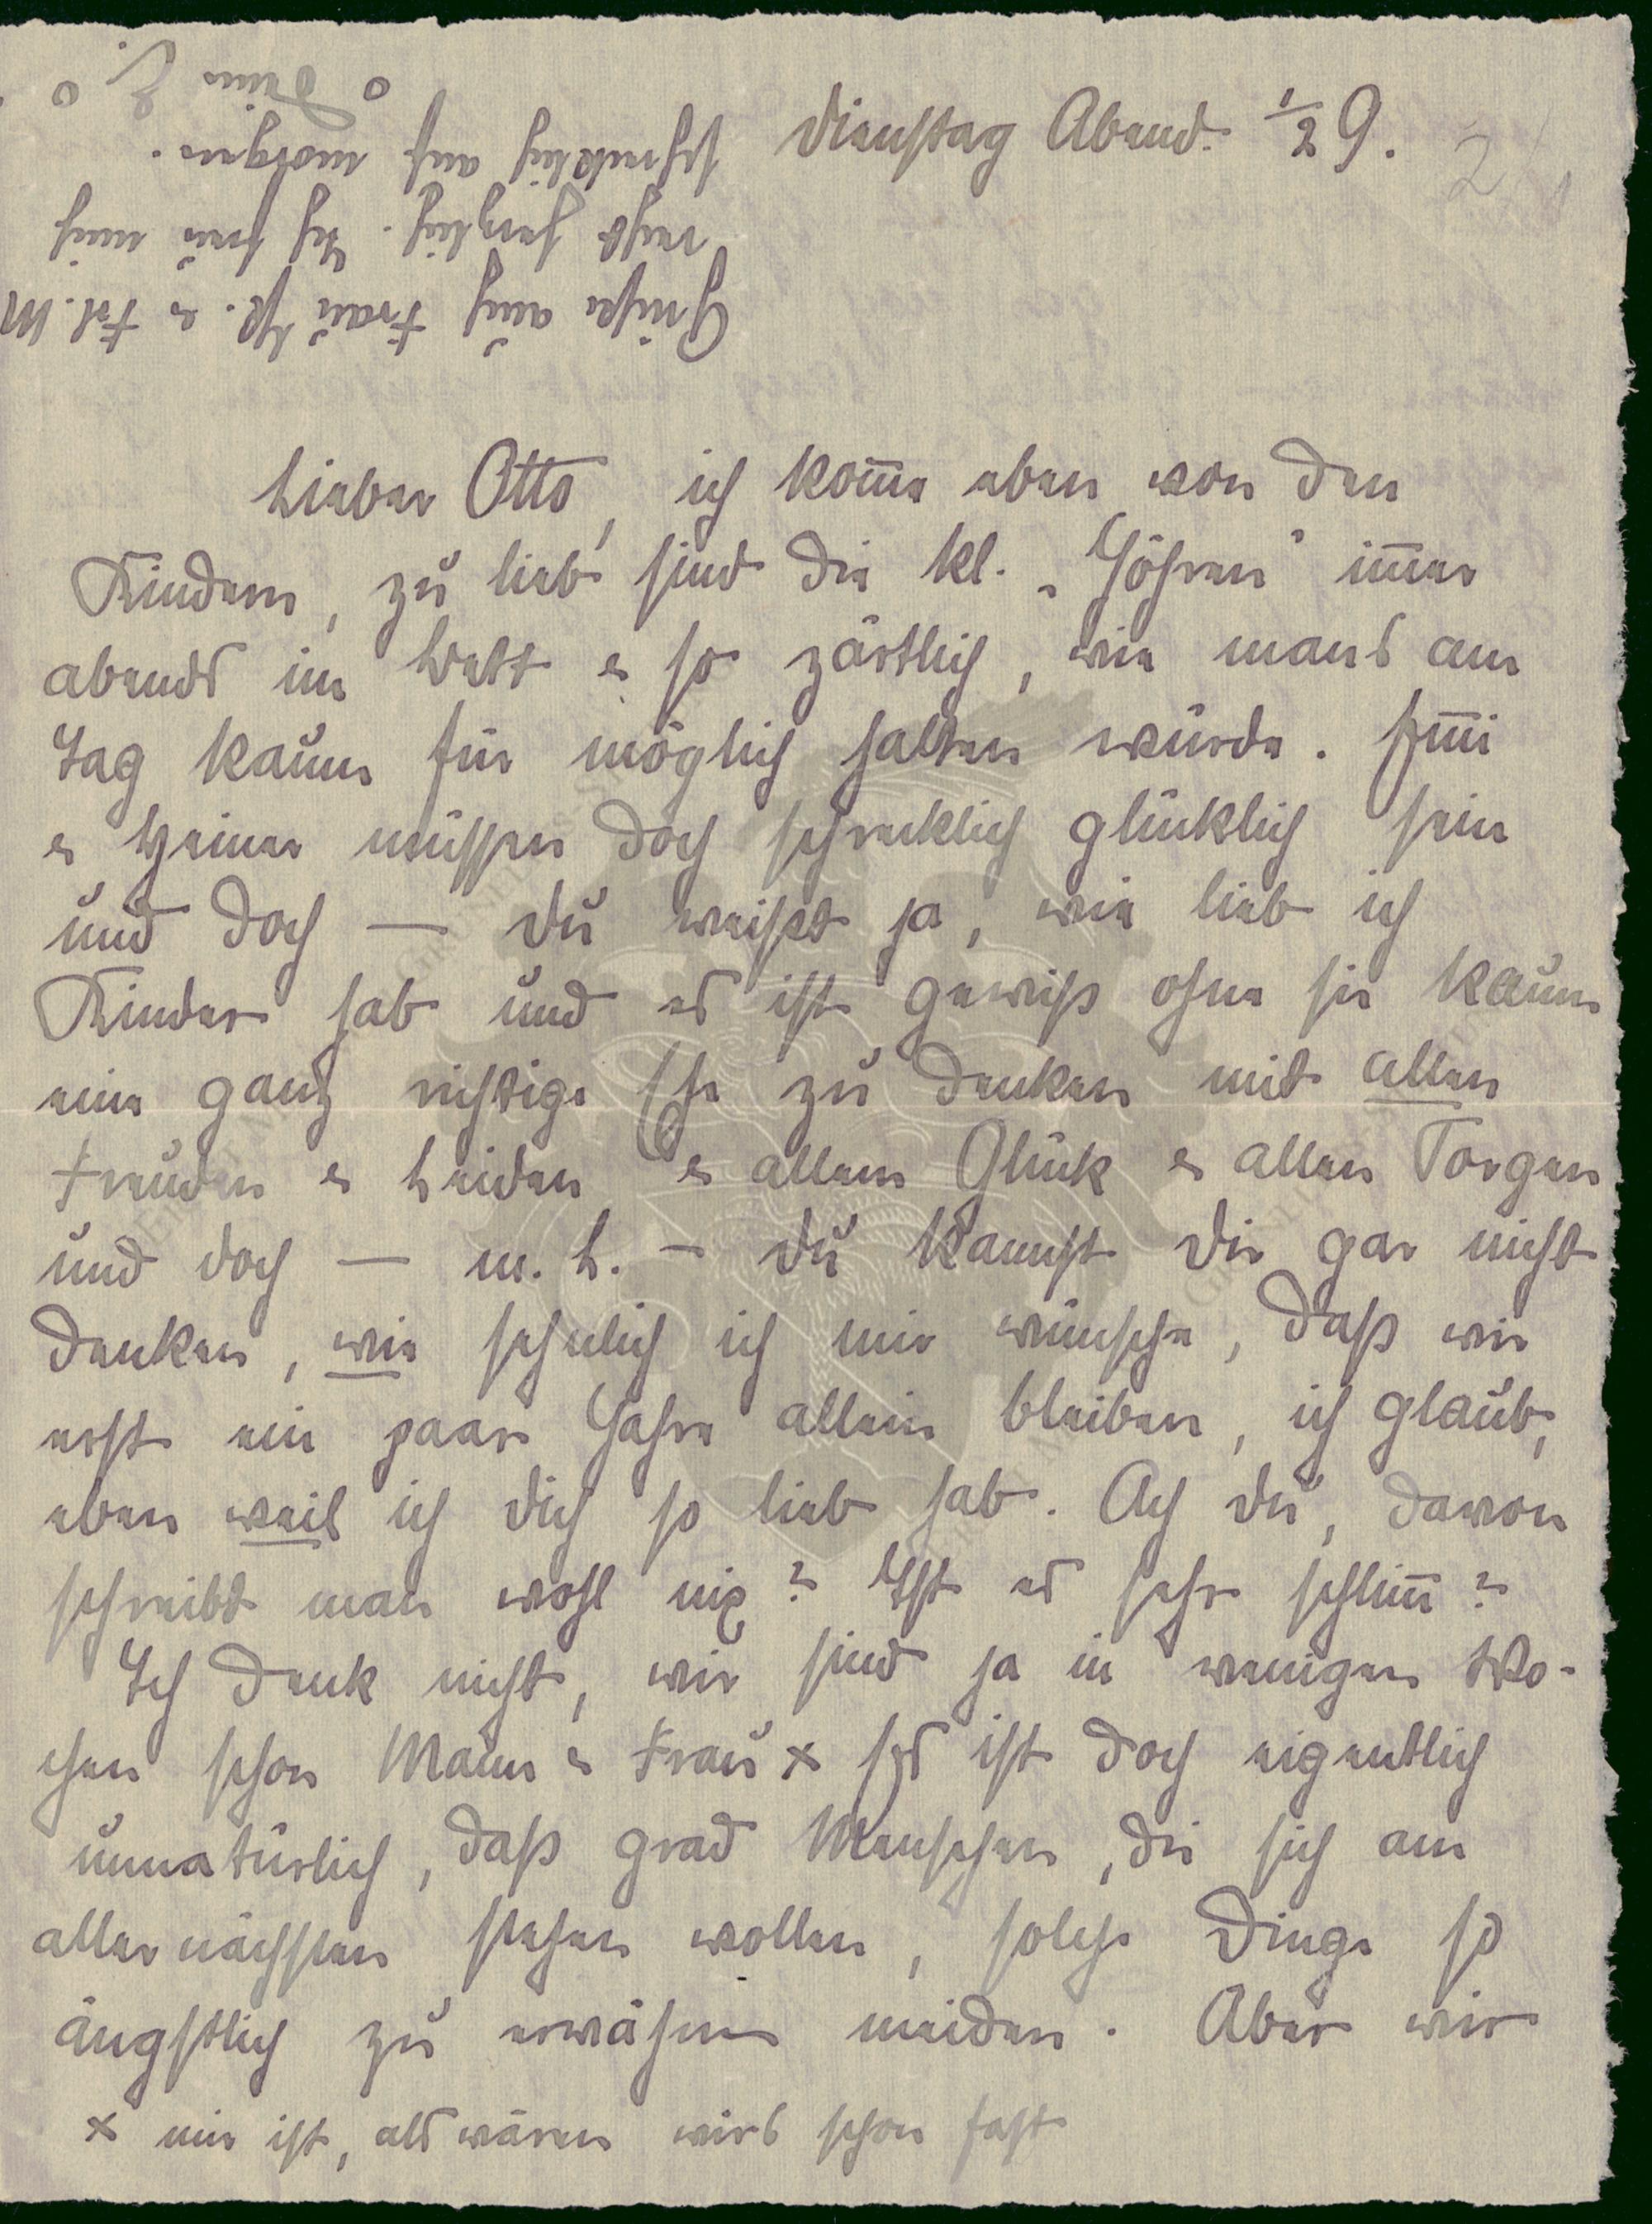 Dienstag Abend. 1/2 9.
Lieber Otto, ich kom̄e eben von den
Kindern, zu lieb sind die kl. „Göhren" im̄er
abends im Bett & so zärtlich, wie mans am
Tag kaum für möglich halten würde. Em̄i
& Heiner müssen doch schrecklich glücklich sein
und doch — Du weißt ja, wie lieb ich
Kinder hab und es ist gewiß ohne sie kaum
eine ganz richtige Ehe zu denken mit allen
Freuden & Leiden & allem Glück & allen Sorgen
und doch — m. L. – Du kannst Dir gar nicht
denken, wie sehnlich ich mir wünsche, daß wir
erst ein paar Jahre allein bleiben, ich glaub,
eben weil ich Dich so lieb hab. Ach Du, davon
schreibt man wohl nix? Ist es sehr schlim̄?
Ich denk nicht, wir sind ja in wenigen Wo-
chen schon Mann & Frau x Es ist doch eigentlich
unnatürlich, daß grad Menschen, die sich am
allernächsten stehen wollen, solche Dinge so
ängstlich zu erwähnen meiden. Aber wir
x mir ist, als wären wirs schon fast
Grüße auch Frau Sch. & Frl. M
recht herzlich. Ich freu mich
schrecklich auf morgen.
Deine L.